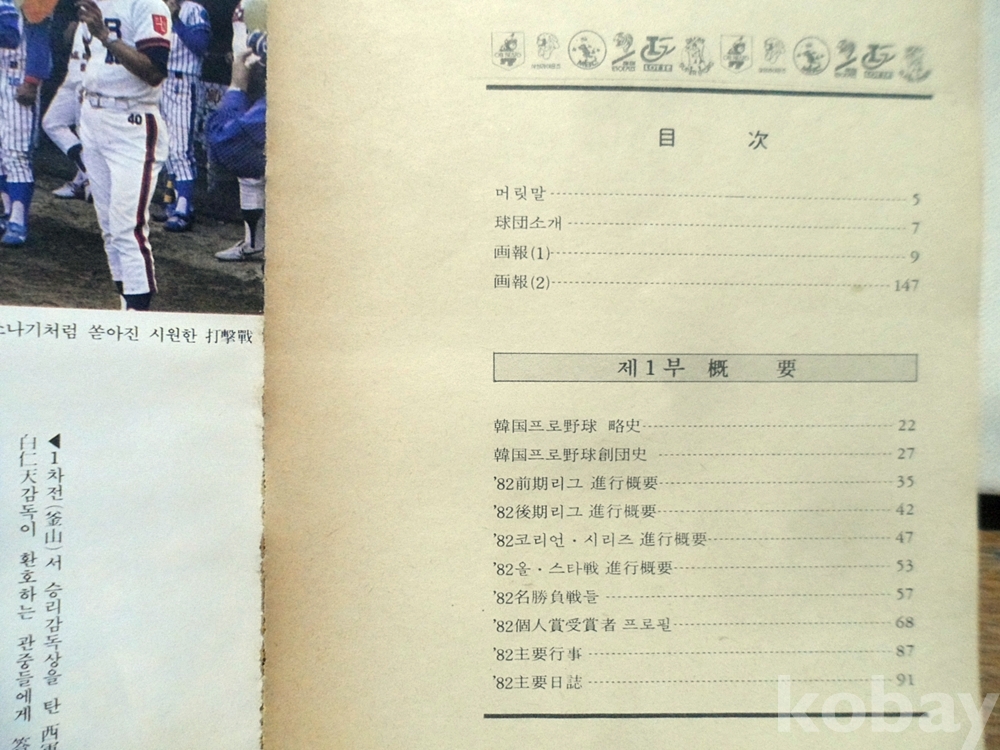 40
소나기처럼 쏟아진 시원한 打擊戰
◀1차전(釜山)서 승리감독상을 탄
白仁天감독이 환호하는 관중들에게
LOTTE
目 次
머릿말 5
球団소개 7
画報(1) 9
画報(2) 147
제1부 概 要
韓国프로野球 略史 22
韓国프로野球創団史 27
'82前期리그 進行概要 35
'82後期리그 進行概要 42
'82코리언・시리즈 進行概要 47
'82올・스타戦 進行概要 53
'82名勝負戦들 57
'82個人賞受賞者 프로필 68
'82主要行事 87
'82主要日誌 91
kobay